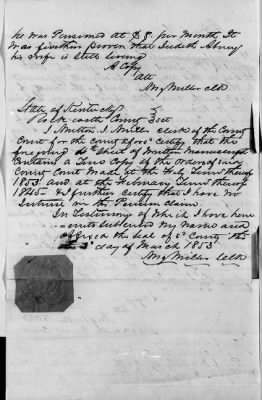 he was Pensioned at $8 per Month, It
was further proven that Judith Abney
his wife is still living
A Copy
Att
Wm Miller clk
State of Kentucky
Rock castle County Sct
I William J. Miller clerk of the County
Court for the county aforesd certify that the
foregoing Sheet of written Manuscript
Contains a True Copy of the orders of said
County Court Made at the July Term thereof
1853 and at the February Term thereof
1845 I further certify that I have no
Interest in this Pension claim
In Testimony of Which I have here
unto subscribed my Name and
affixed the Seal of sd County this
day of March 1853
Wm Miller Clk